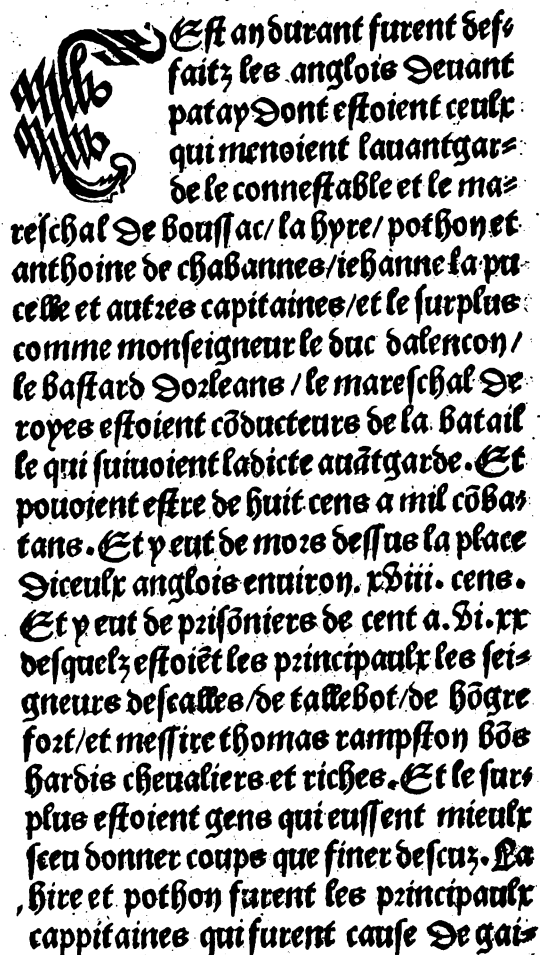 CEst an durant furent def⸗
faitz les anglois Deuant
patay Dont estoient ceulx
qui menoient lauantgar⸗
de le connestable et le ma⸗
reschal De boussac/ la hyre/ pothon et
anthoine de chabannes/iehanne la pu
celle et autres capitaines/et le surplus
comme monseigneur le duc dalencon/
le bastard Dorleans / le mareschal De
royes estoient cõducteurs de la batail
le qui suiuoient ladicte auãtgarde. Et
pouoient estre de huit cens a mil cõba⸗
tans. Et y eut de mors dessus la place
Diceulx anglois enuiron. xviii. cens.
Et y eut de prisõniers de cent a. vi. xx
desquelz estoiẽt les principaulx les sei⸗
gneurs descalles/de tallebot/de hõgre
fort/et messire thomas rampston bõs
hardis cheualiers et riches. Et le sur⸗
plus estoient gens qui eussent mieulx
sceu donner coups que finer descuz. La
hire et pothon furent les principaulx
cappitaines qui furent cause De gai⸗